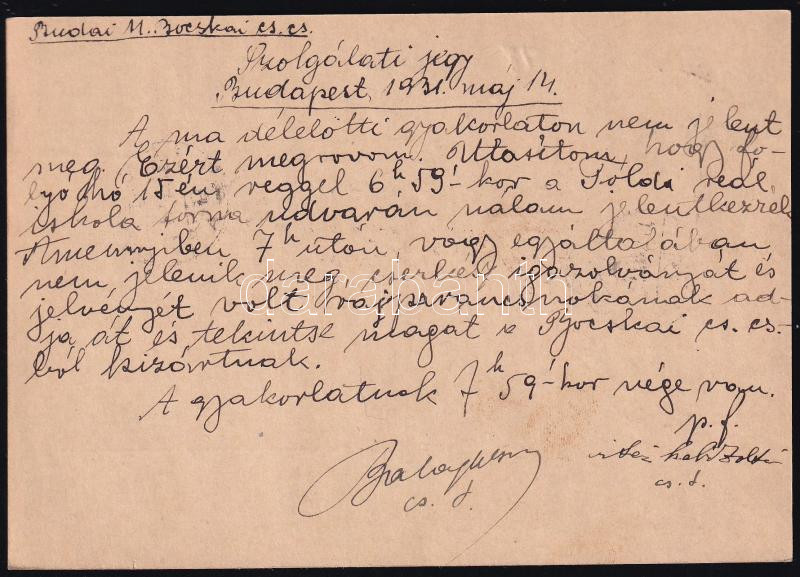 Budai 11. Bocskai cs. cs.
Szolgálati jegy
Budapest, 1931. máj 14.
A ma délelőtti gyakorlaton nem jelent
meg. Ezért megrovom. Utasítom, hogy fo-
lyó hó 15én reggel 6h 59'-kor a Toldi reál
iskola torna udvarán nálam jelentkezzék
Amennyiben 7h után, vagy egyáltalában
nem jelenik meg, cserkész igazolványát és
jelvényét volt rajparancsnokának ad-
ja át és tekintse magát a Bocskai cs. cs.-
ból kizártnak.
A gyakorlatnak 7h 59'-kor vége van.
p. f.
vitéz Zoltán
cs. t.
cs. t.
darabanth